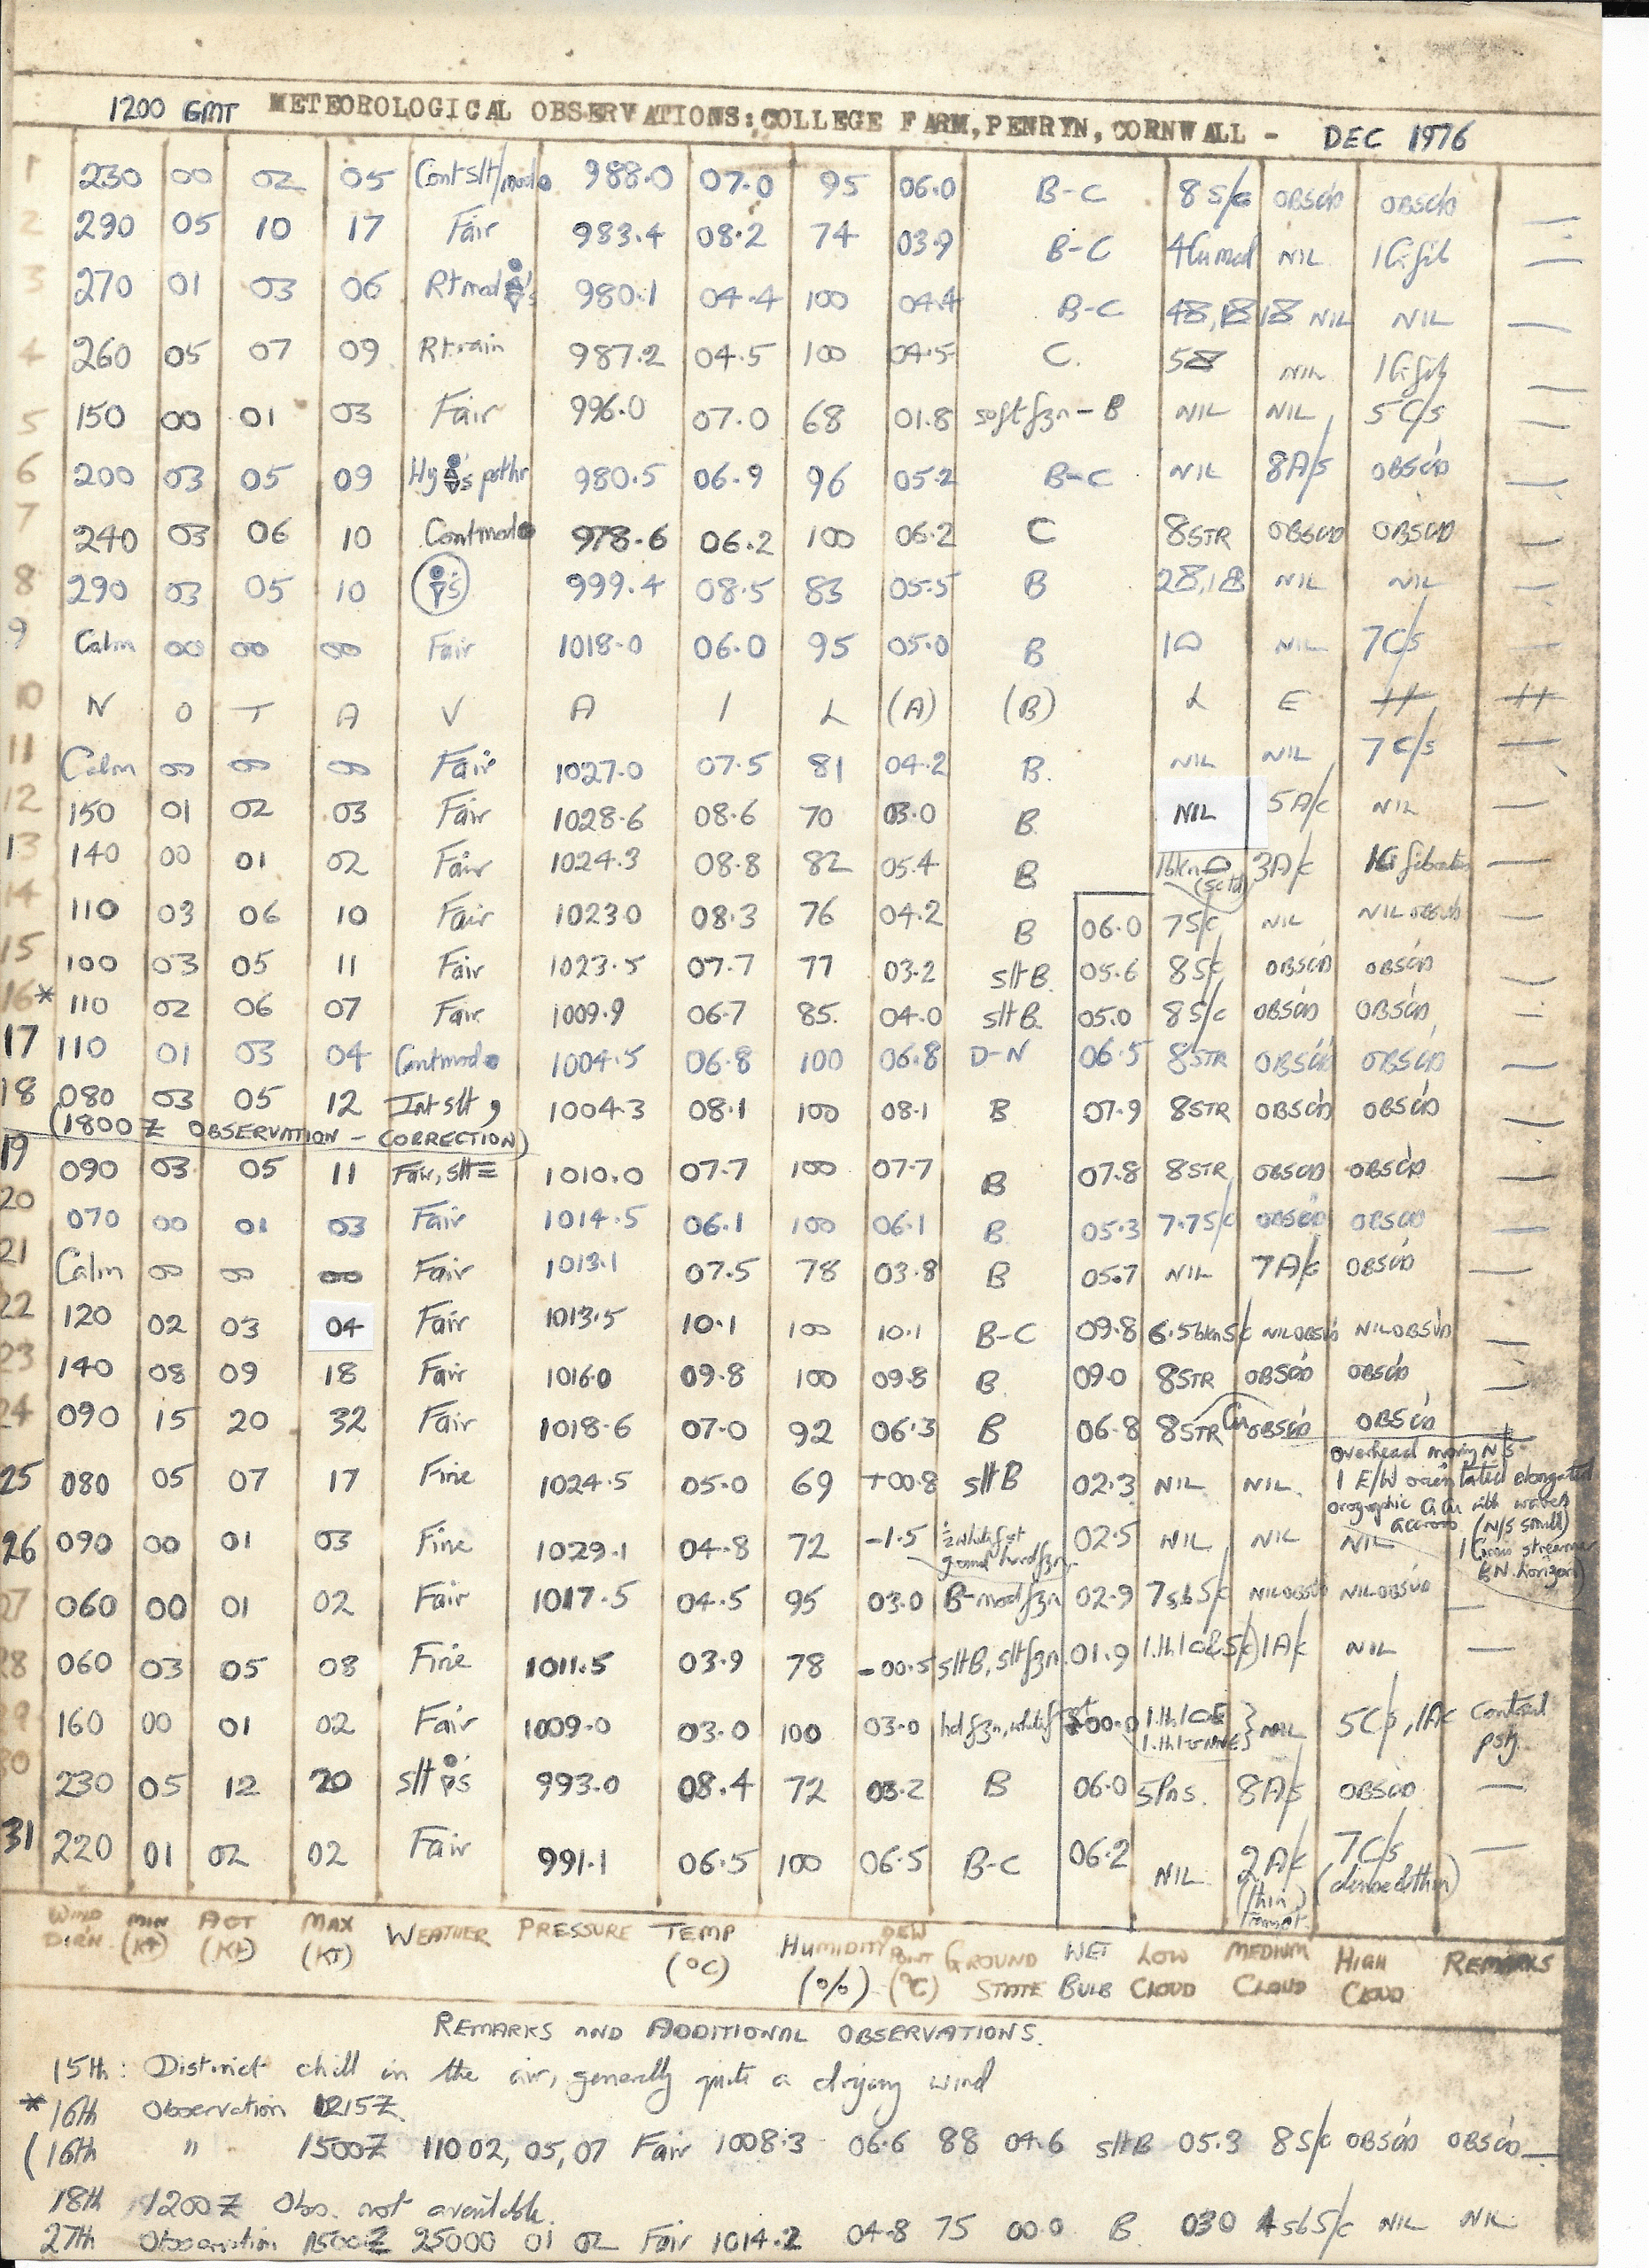 1200 GMT METEOROLOGICAL OBSERVATIONS: COLLEGE FARM, PENRYN, CORNWALL - DEC 1976
1 230 00 02 05 Cont slt/mod 988.0 07.0 95 06.0 B-C 8 S/c OBSC'D OBSC'D —
2 290 05 10 17 Fair 983.4 08.2 74 03.9 B-C 4Cu med NIL 1Ci fib —
3 270 01 03 06 Rt mod 's 980.1 04.4 100 04.4 B-C NIL NIL —
4 260 05 07 09 Rt rain 987.2 04.5 100 04.5 C. NIL 1Ci fib —
5 150 00 01 03 Fair 996.0 07.0 68 01.8 soft fzn - B NIL NIL 5 C/s —
6 200 03 05 09 Hy 's pst hr 980.5 06.9 96 05.2 B-C NIL 8A/s OBSC'D —
7 240 03 06 10 Cont mod 978.6 06.2 100 06.2 C 8STR OBSC'D OBSC'D —
8 290 03 05 10 's 999.4 08.5 83 05.5 B NIL NIL —
9 Calm 00 00 00 Fair 1018.0 06.0 95 05.0 B NIL 7C/s —
10 N O T A V A I L (A) (B) L E
11 Calm 00 00 00 Fair 1027.0 07.5 81 04.2 B. NIL NIL 7 C/s —
12 150 01 02 03 Fair 1028.6 08.6 70 03.0 B NIL 5A/c NIL —
13 140 00 01 02 Fair 1024.3 08.8 82 05.4 B (sctd) 3A/c 1Ci fibratus —
14 110 03 06 10 Fair 1023.0 08.3 76 04.2 B 06.0 7S/c NIL NIL OBSC'D —
15 100 03 05 11 Fair 1023.5 07.7 77 03.2 slt B. 05.6 8S/c OBSC'D OBSC'D —
16* 110 02 06 07 Fair 1009.9 06.7 85. 04.0 slt B. 05.0 8S/c OBSC'D OBSC'D —
17 110 01 03 04 Cont mod 1004.5 06.8 100 06.8 D-N 06.5 8STR OBSC'D OBSC'D —
18 080 03 05 12 Int slt , 1004.3 08.1 100 08.1 B 07.9 8STR OBSC'D OBSC'D —
(1800 Z OBSERVATION - CORRECTION)
19 090 03 05 11 Fair, slt = 1010.0 07.7 100 07.7 B 07.8 8STR OBSC'D OBSC'D —
20 070 00 01 03 Fair 1014.5 06.1 100 06.1 B 05.3 7.7S/c OBSC'D OBSC'D —
21 Calm 00 00 00 Fair 1013.1 07.5 78 03.8 B 05.7 NIL 7A/c OBSC'D —
22 120 02 03 04 Fair 1013.5 10.1 100 10.1 B-C 09.8 6.5bknS/c NILOBSC'D NILOBSC'D —
23 140 08 09 18 Fair 1016.0 09.8 100 09.8 B. 09.0 8STR OBSC'D OBSC'D —
24 090 15 20 32 Fair 1018.6 07.0 92 06.3 B 06.8 8STR Cu OBSC'D OBSC'D
25 080 05 07 17 Fine 1024.5 05.0 69 +00.8 slt B 02.3 NIL NIL. Overhead moving N/S 1 E/W orientated elongated orographic CiCu with waves accross (N/S small)
26 090 00 01 03 Fine 1029.1 04.8 72 -1.5 ½ white fst ground hard fzn. 02.5 NIL NIL NIL streamer horizon)
27 060 00 01 02 Fair 1017.5 04.5 95 03.0 B-mod fzn 02.9 7 sb S/c NILOBSC'D NILOBSC'D —
28 060 03 05 08 Fine 1011.5 03.9 78 -00.5 slt B, slt fzn 01.9 1A/c NIL —
29 160 00 01 02 Fair 1009.0 03.0 100 03.0 hd fzn, white fst 00.0 NIL 5C/s, 1Ac Contrail
30 230 05 12 20 slt 's 993.0 08.4 72 03.2 B 06.0 5Pns. 8A/s OBSC'D —
31 220 01 02 02 Fair 991.1 06.5 100 06.5 B-C 06.2 NIL 2A/c (thin) Transpt. 7C/s (dense & thin) —
WIND DIRN. MIN (KT) ACT (KT) MAX (KT) WEATHER PRESSURE TEMP (°C) HUMIDITY (%) DEW POINT (°C) GROUND STATE WET BULB LOW CLOUD MEDIUM CLOUD HIGH CLOUD REMARKS
REMARKS AND ADDITIONAL OBSERVATIONS.
15th: Distinct chill in the air, generally quite a drying wind
*16th Observation 1215Z.
(16th " 1500Z 110 02, 05, 07 Fair 1008.3 06.6 88 04.6 slt B 05.3 8S/c OBSC'D OBSC'D —
18th 1200Z Obs. not available.
27th Observation 1500Z 250 00 01 02 Fair 1014.2 04.8 75 00.0 B 03.0 4 sb S/c NIL NIL